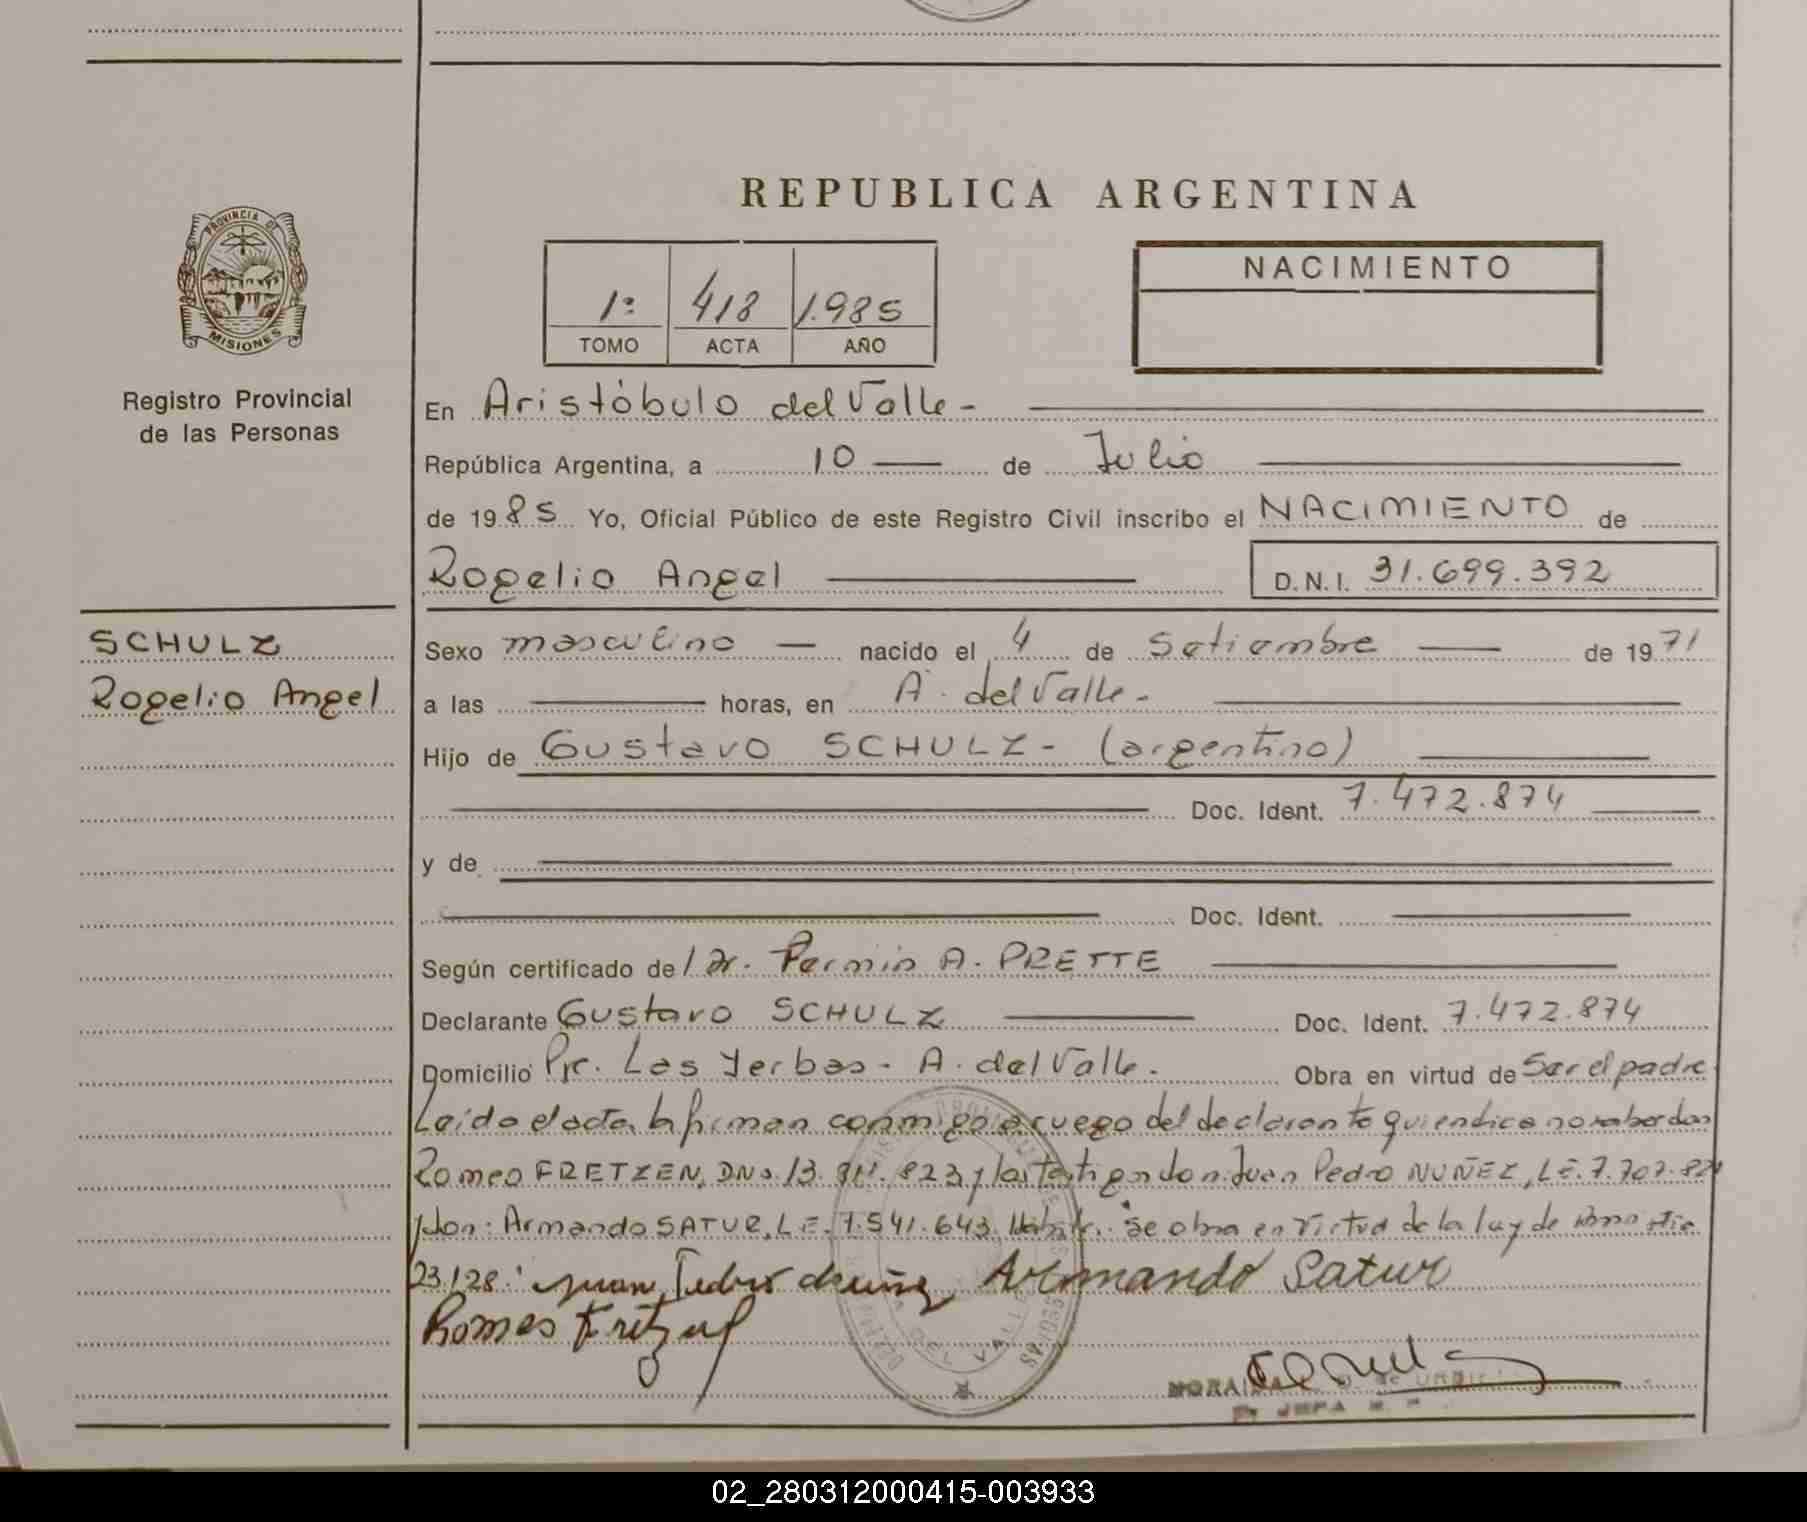 REPUBLICA ARGENTINA
PROVINCIA DE
MISIONES
Registro Provincial
de las Personas
1º 418 1.985
TOMO ACTA AÑO
NACIMIENTO
En Aristóbulo del Valle -
República Argentina, a 10 de Julio
de 1985 Yo, Oficial Público de este Registro Civil inscribo el NACIMIENTO de
Rogelio Angel D.N.I. 31.699.392
SCHULZ
Rogelio Angel
Sexo masculino nacido el 4 de Setiembre de 1971
a las horas, en A. del Valle.
Hijo de Gustavo SCHULZ - (argentino)
Doc. Ident. 7.472.874
y de
Doc. Ident.
Según certificado de Dr. Fermin A. PRETTE
Declarante Gustavo SCHULZ Doc. Ident. 7.472.874
Domicilio Pje. Las Yerbas - A. del Valle. Obra en virtud de Ser el padre
Leída el acta, la firman conmigo a ruego del declarante quien dice no saber don
Romeo FRETZEN, DNI. 13. 823 y los testigos don: Juan Pedro NUÑEZ, LE. 7.707.
y don: Armando SATUR, L.E. 7.541.643. Se obra en virtud de la ley de
23.128. Juan Pedro Armando Satur
Romeo
DEL VALLE
JEFA
02_280312000415-003933